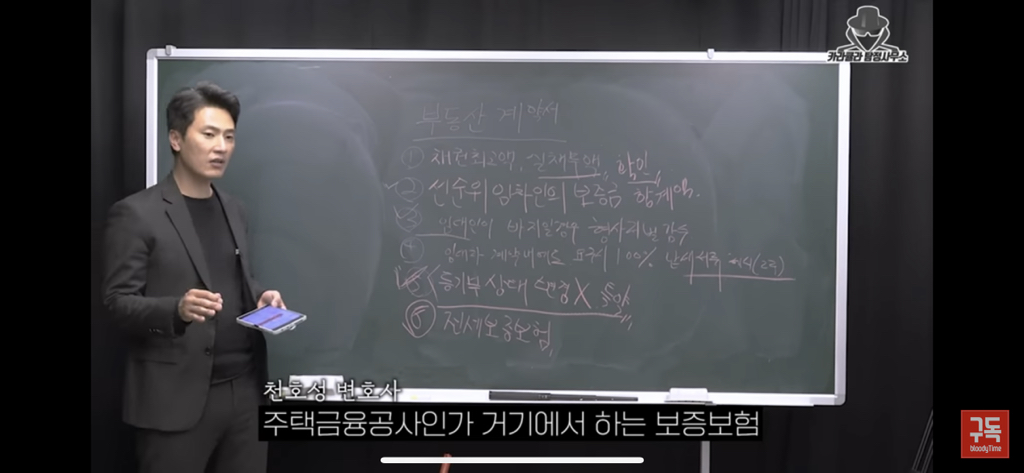 카라큘라 탐정사무소
부동산 계약서
① 채권최고액, 실채무액, 확인
② 선순위 임차인의 보증금 합계액.
③ 임대인이 바지일경우 형사처벌 감수
④ 임차인 계약 요구시 100%
⑤ 등기부 상태 변경 X
⑥ 전세보증보험
천호성 변호사
주택금융공사인가 거기에서 하는 보증보험
구독
bloodyTime